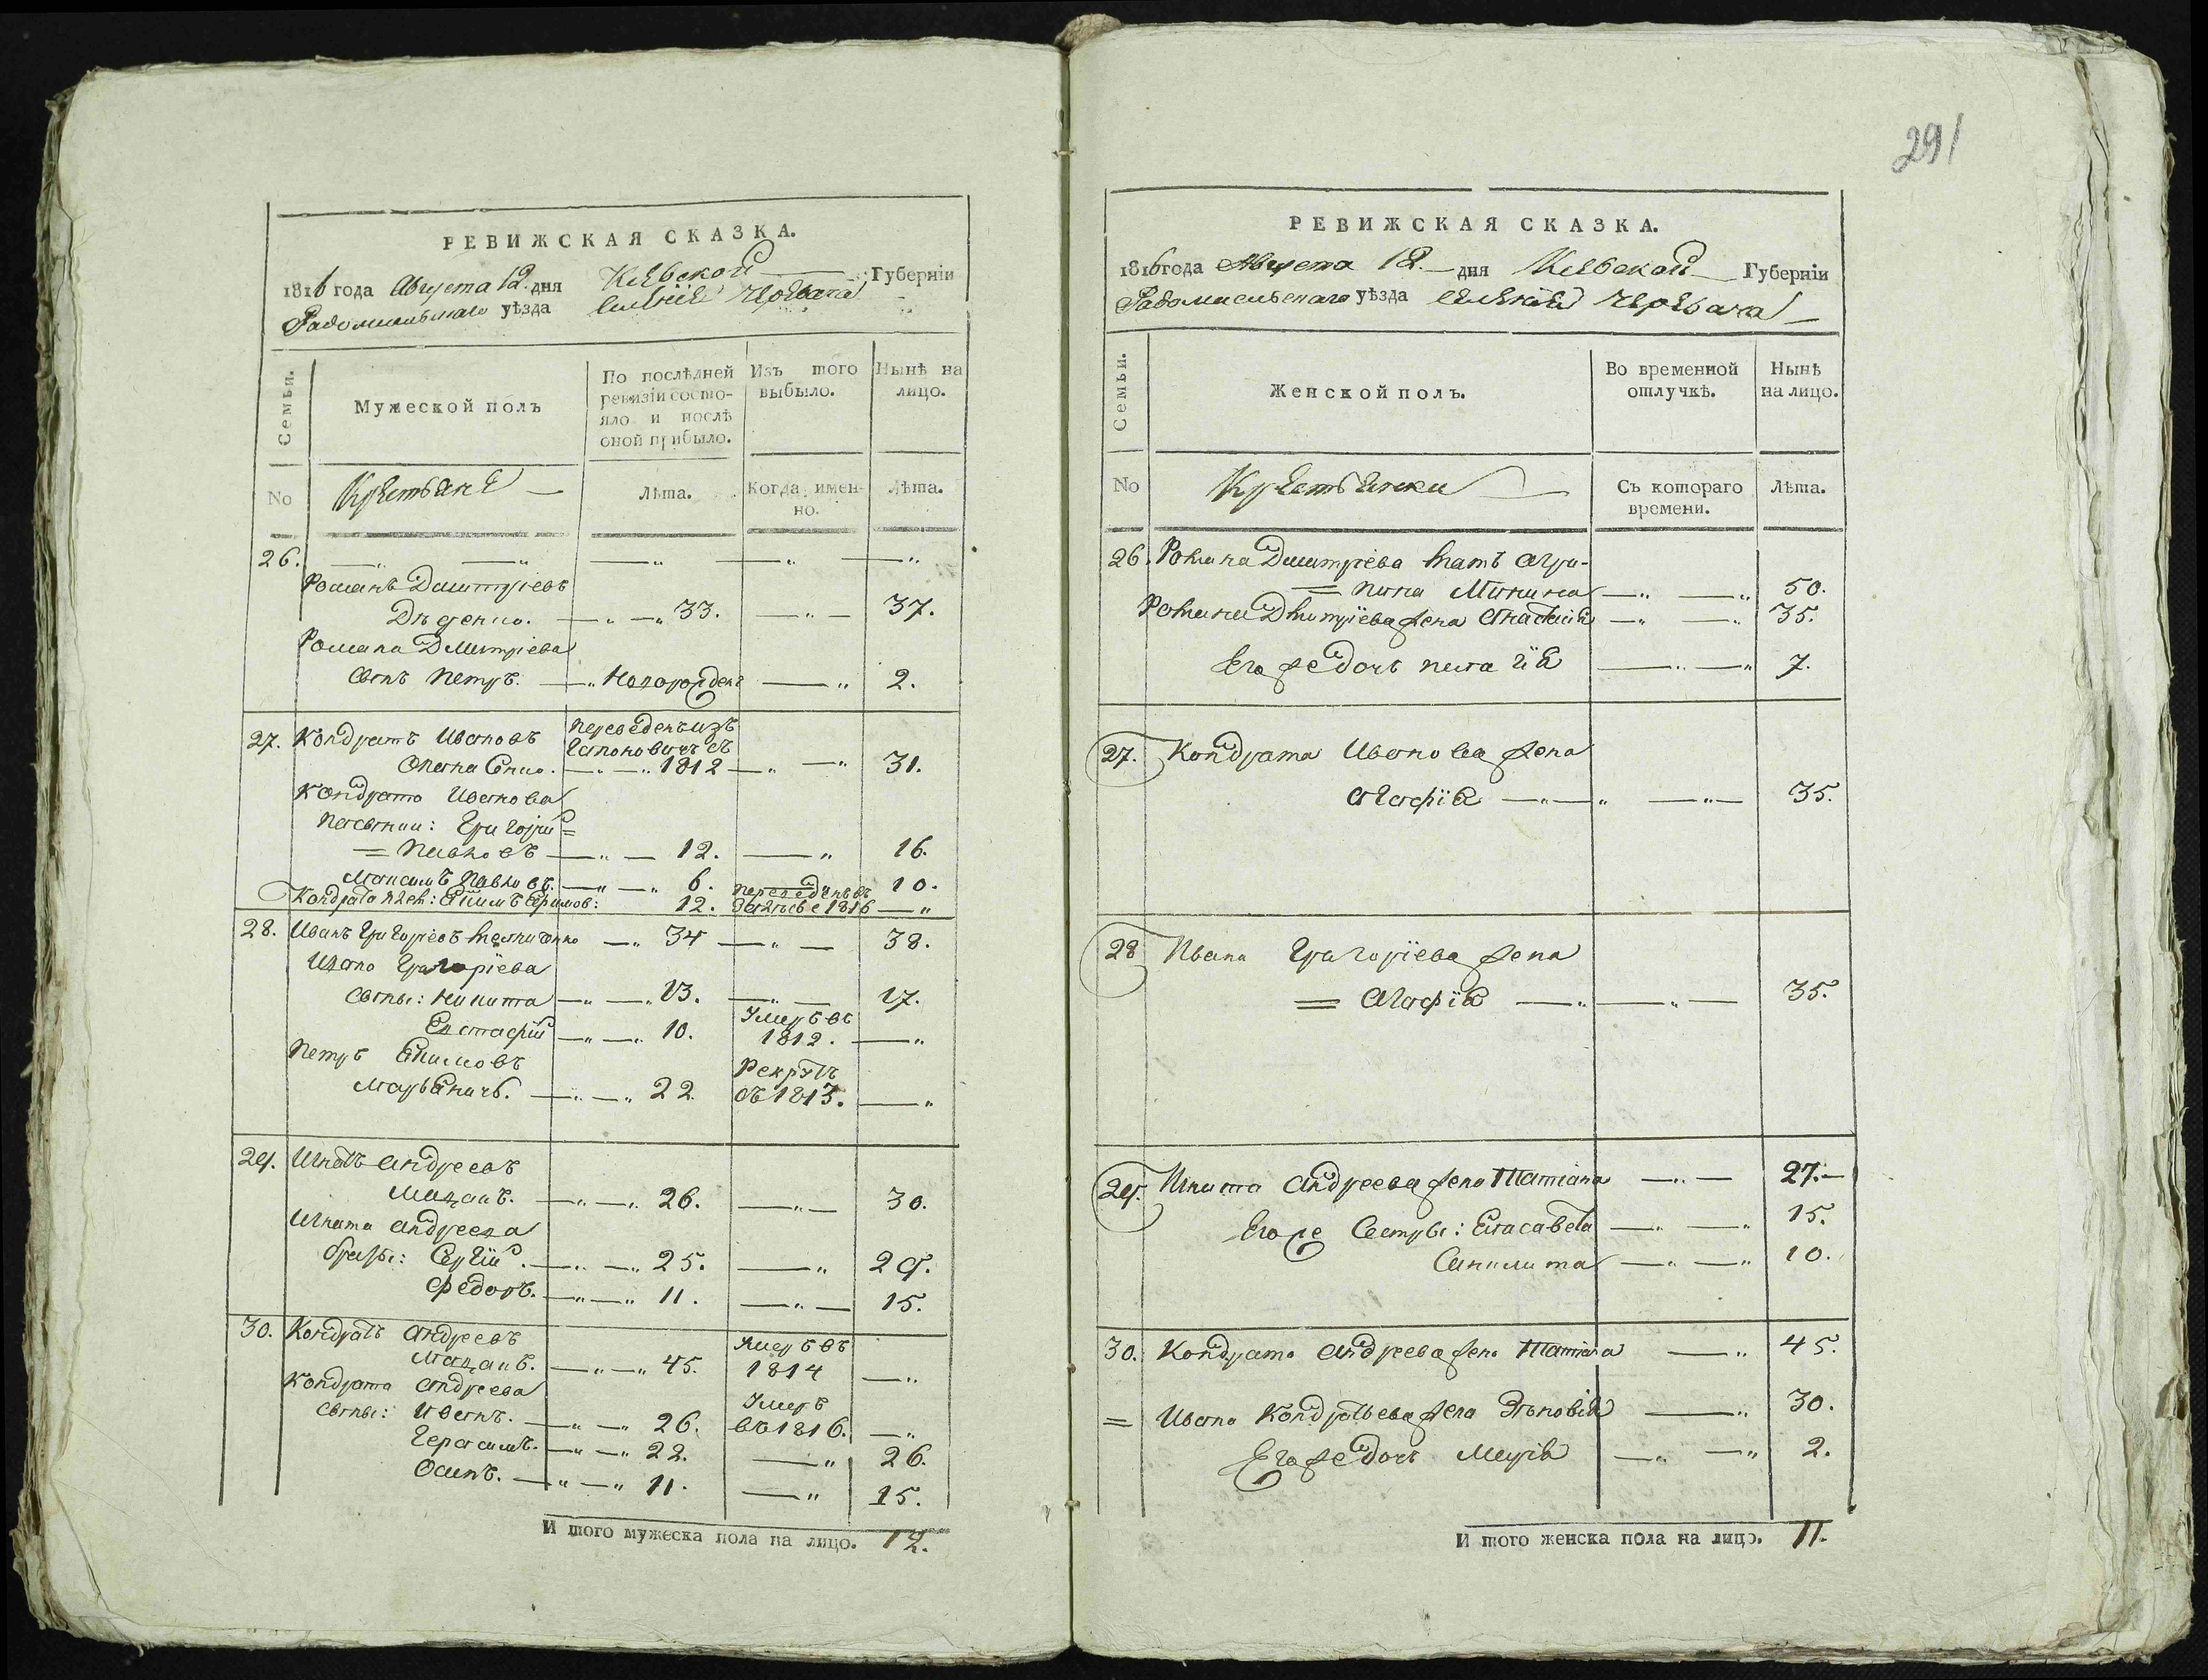 291
РЕВИЖСКАЯ СКАЗКА.
1816 года Августа 12. дня Киевской Губерніи
Радомисльскаго уѣзда селенія Черевача
Семьи. Мужеской полъ По послѣдней ревизіи состояло и послѣ оной прибыло. Изъ того выбыло. Нынѣ на лицо.
No Крестьяне Лѣта. Когда имен-но. Лѣта.
26.
Романъ Дмитріевъ
33. 37.
Романа Дмитріева
сынъ Петръ. Новорожденъ 2.
27. Кондратъ Ивановъ Переведенъ изъ
1812 31.
Кондрата Иванова
пасынки: Григорій
= Павловъ 12. 16.
Максимъ Павловъ. 6. 10.
Кондрата 12. Переведенъ въ 1816
28. Иванъ Григорьевъ 34 38.
Ивана Григоріева
сыны: Никита 13. 17.
Евстафій 10. Умеръ въ 1812.
Петръ Екимовъ
22. Рекрутъ въ 1813.
29. Игнатъ Андреевъ
Мазанъ. 26. 30.
Игната Андреева
братья: Сергій. 25. 29.
Федоръ. 11. 15.
30. Кондратъ Андреевъ
Мазанъ. 45. Умеръ въ 1814
Кондрата Андреева
сыны: Иванъ. 26. Умеръ въ 1816.
Герасимъ. 22. 26.
Осипъ. 11. 15.
И того мужеска пола на лицо. 12.
РЕВИЖСКАЯ СКАЗКА.
1816 года Августа 12. дня Киевской Губерніи
Радомисльскаго уѣзда селенія Черевача
Семьи. Женской полъ. Во временной отлучкѣ. Нынѣ на лицо.
No Крестьянки Съ котораго времени. Лѣта.
26. Романа Дмитріева мать Агри-
= пина Минина 50.
Романа Дмитріева жена Анастасія 35.
Его же дочь 7.
27. Кондрата Иванова жена
Агафія 35.
28 Ивана Григоріева жена
= Агафія 35.
29. Игната Андреева жена Татіана 27.
Его же сестры: Елисавета 15.
10.
30. Кондрата Андреева жена Татіана 45.
= Ивана Кондратьева жена Зѣновія 30.
Его же дочь Марія 2.
И того женска пола на лицо. 11.